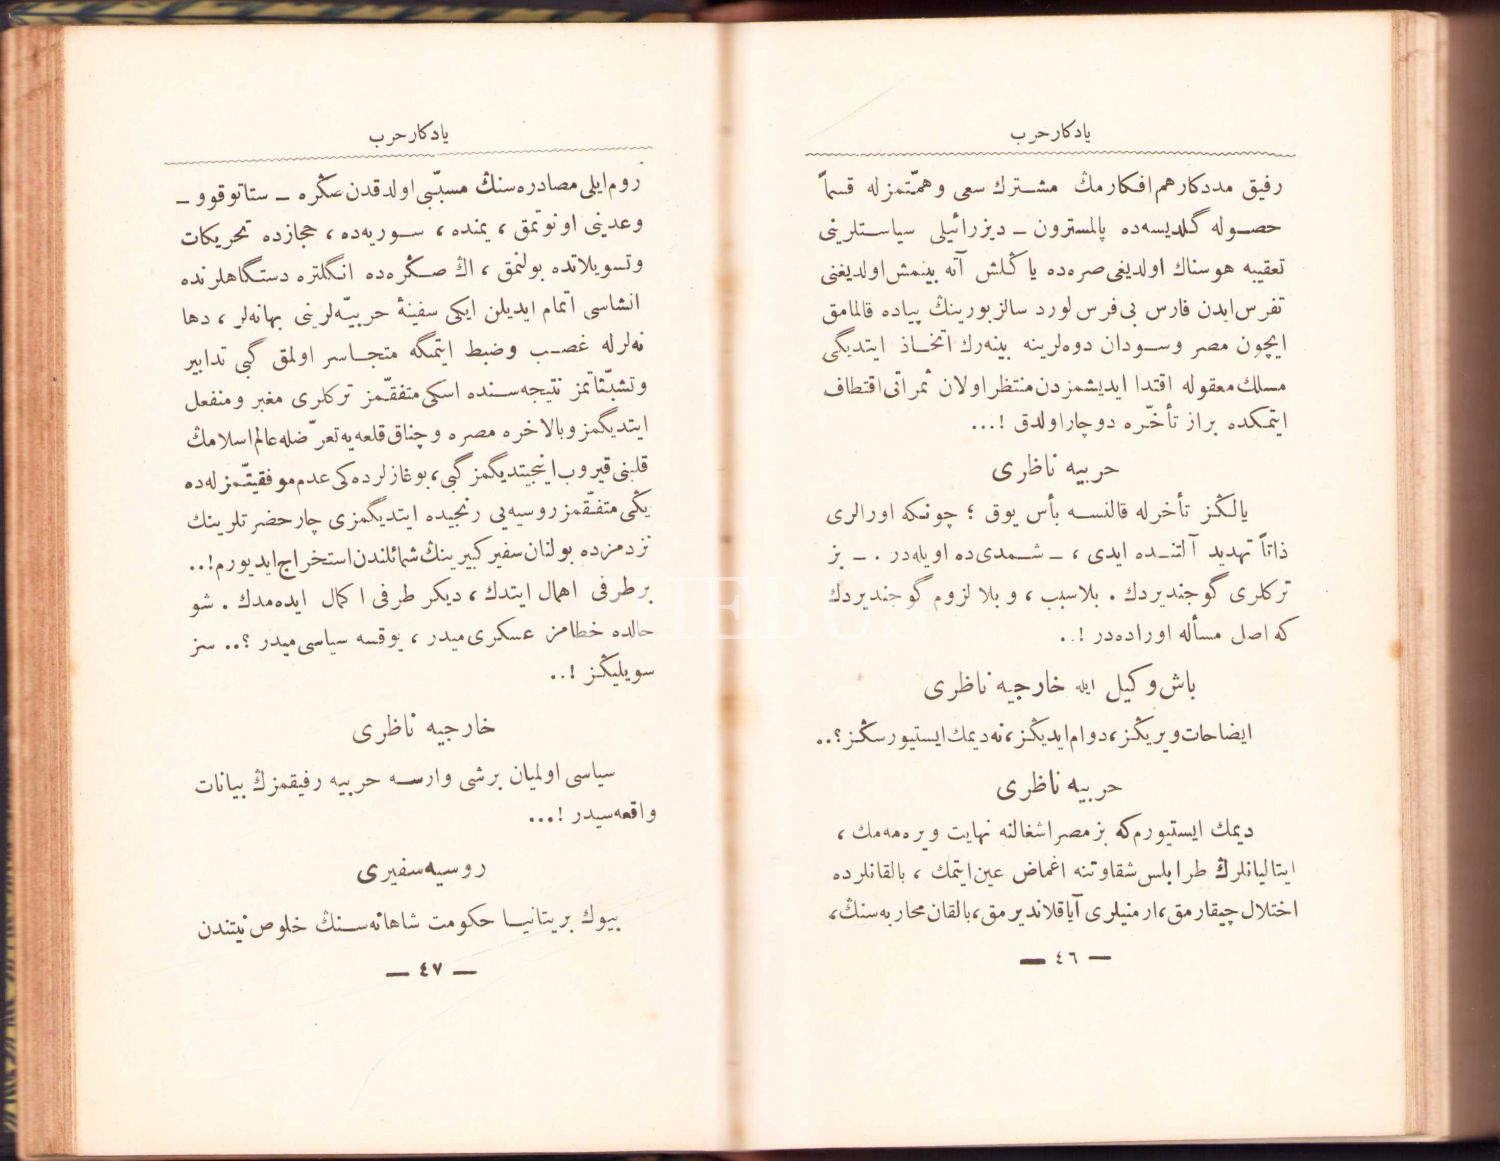 يادكار حرب
رفيق مددكار هم افكارمڭ مشترك سعى و همّتمزله قسماً
حصوله گلديسه‌ده پالمسترون ـ ديزرائيلى سياستلرينى
تعقيبه هوسناك اولديغى صره‌ده ياڭلش آته بينمش اولديغنى
تفرس ايدن فارس بى فرس لورد سالزبورينڭ پياده قالمامق
ايچون مصر و سودان دوه‌لرينه بينه‌رك اتخاذ ايتديگى
مسلك معقوله اقتدا ايديشمزدن منتظر اولان ثمراتى اقتطاف
ايتمكده براز تأخّره دوچار اولدق !...
حربيه ناظرى
يالڭز تأخرله قالنسه بأس يوق ؛ چونكه اورالرى
ذاتاً تهديد آلتنده ايدى ، ـ شمدى‌ده اويله‌در . ـ بز
تركلرى گوجنديردك . بلاسبب ، و بلا لزوم گوجنديردك
كه اصل مسأله اوراده‌در !..
باش وكيل ايله خارجيه ناظرى
ايضاحات ويريڭز، دوام ايديڭز، نه ديمك ايستيورسڭز؟..
حربيه ناظرى
ديمك ايستيورم كه بز مصر اشغالنه نهايت ويره‌مه‌مك ،
ايتاليانلرڭ طرابلس شقاوتنه اغماض عين ايتمك ، بالقانلرده
اختلال چيقارمق، ارمنيلرى آياقلانديرمق، بالقان محاربه‌سنڭ،
— ٤٦ —
يادكار حرب
روم ايلى مصادره‌سنڭ مسبّبى اولدقدن صڭره ـ ستاتوقوو ـ
وعدينى اونوتمق ، يمنده ، سوريه‌ده ، حجازده تحريكات
وتسويلاتده بولنمق ، اڭ صڭره‌ده انگلتره دستگاهلرنده
انشاسى اتمام ايديلن ايكى سفينهٔ حربيّه‌لرينى بهانه‌لر ، دها
نه‌لرله غصب وضبط ايتمگه متجاسر اولمق گبى تدابير
وتشبّثاتمز نتيجه‌سنده اسكى متفقّمز تركلرى مغبر و منفعل
ايتديگمز و بالاخره مصره و چناق قلعه‌يه تعرّضله عالم اسلامڭ
قلبنى قيروب اينجيتديگمز گبى، بوغازلرده‌كى عدم موفقيتّمزله‌ده
يڭى متفقّمز روسيه‌يى رنجيده ايتديگمزى چار حضرتلرينڭ
نزدمزده بولنان سفير كبيرينڭ شمائلندن استخراج ايديورم!..
بر طرفى اهمال ايتدك ، ديكر طرفى اكمال ايده‌مدك . شو
حالده خطامز عسكرى‌ميدر ، يوقسه سياسى‌ميدر ؟.. سز
سويليڭز !..
خارجيه ناظرى
سياسى اولميان برشى وارسه حربيه رفيقمزڭ بيانات
واقعه‌سيدر !...
روسيه سفيرى
بيوك بريتانيا حكومت شاهانه‌سنڭ خلوص نيتندن
— ٤٧ —